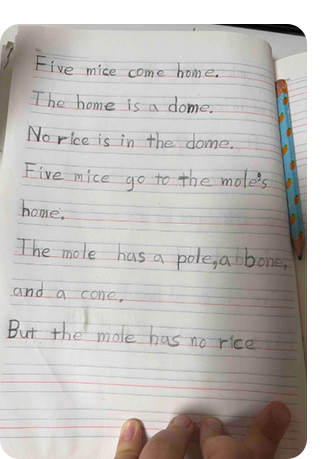 Five mice come home.
The home is a dome.
No rice is in the dome.
Five mice go to the mole's
home.
The mole has a pole, a bone,
and a cone.
But the mole has no rice